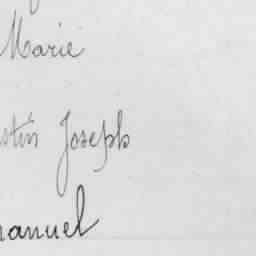 Marie
stin Joseph
anuel